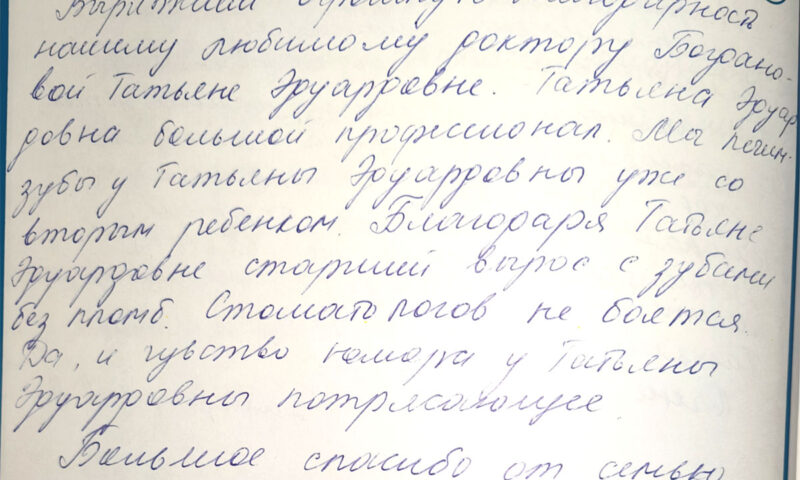 Выражаем огромную благодарность
нашему любимому доктору Богдано-
вой Татьяне Эдуардовне. Татьяна Эдуар
довна большой профессионал. Мы лечим
зубы у Татьяны Эдуардовны уже со
вторым ребенком. Благодаря Татьяне
Эдуардовне старший вырос с зубами
без пломб. Стоматологов не боятся.
Да, и чувство юмора у Татьяны
Эдуардовны потрясающее.
Большое спасибо от семьи